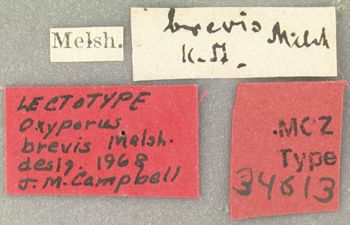 Melsh.
brevis Melsh
K.H.
LECTOTYPE
Oxyporus
brevis Melsh.
desig. 1968
J.M. Campbell
MCZ
Type
34613